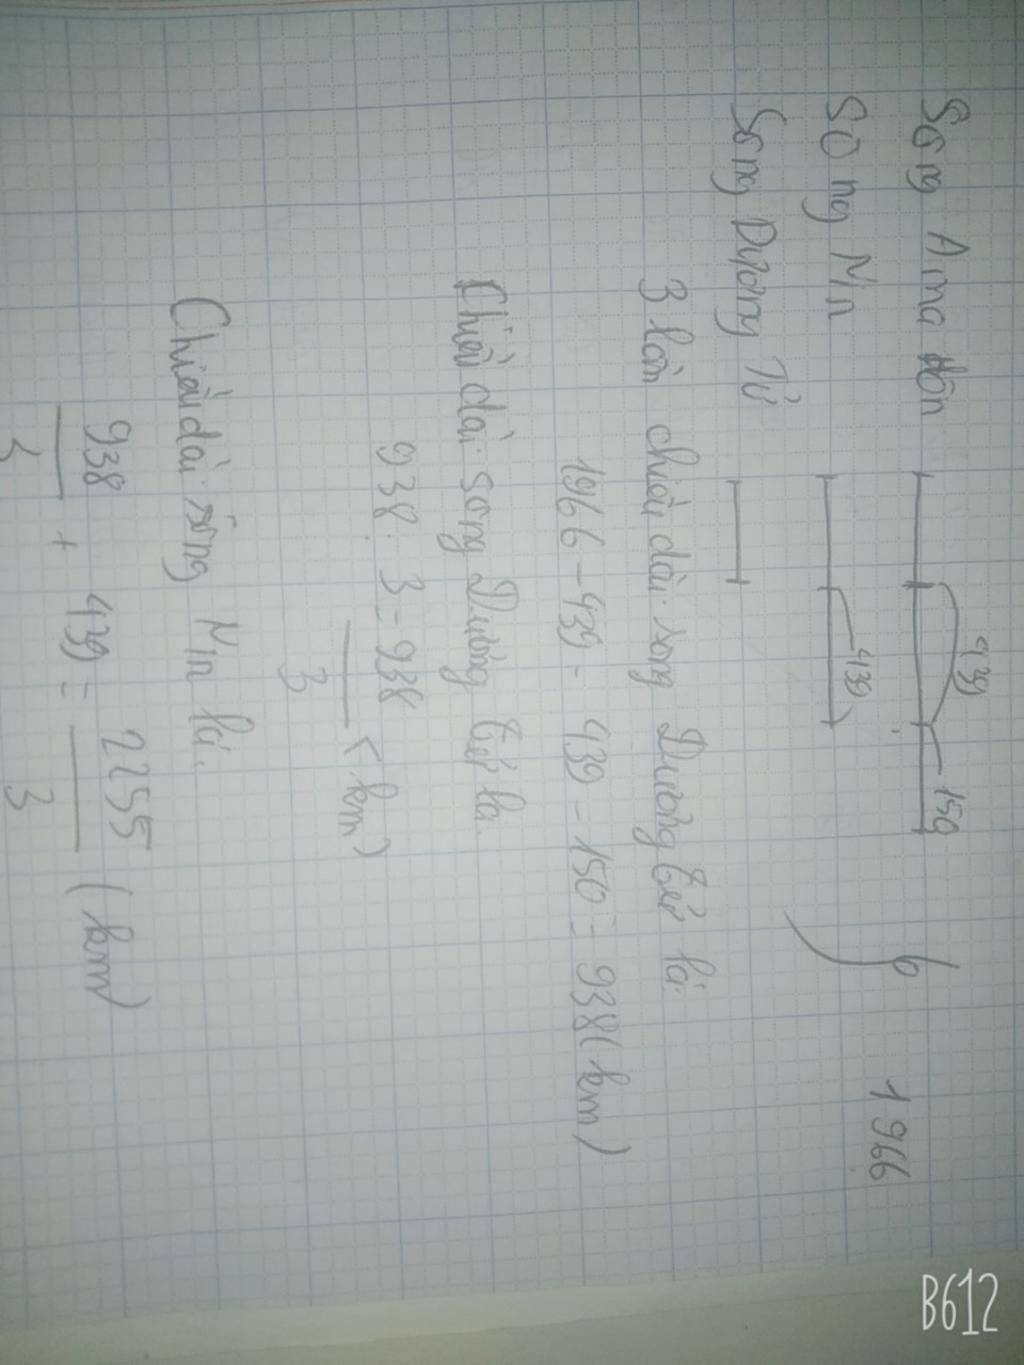 Sông Ama dôn 439 150
Sông Nin 439 1966
Sông Dương Tử
3 lần chiều dài sông Dương tử là.
1966 - 439 - 439 - 150 = 938 (km)
Chiều dài sông Dương tử là.
938 : 3 = 938
3 (km)
Chiều dài sông Nin là.
938 + 439 = 2255 (km)
3 3
B612